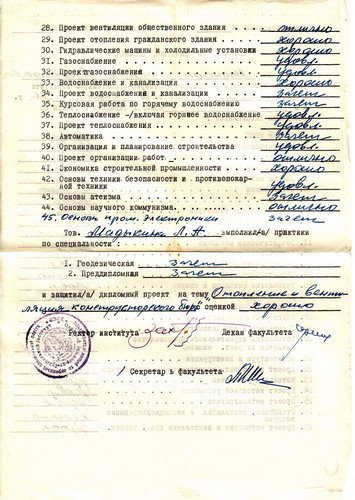 28. Проект вентиляции общественного здания . . . . отлично
29. Проект отопления гражданского здания . . . . . хорошо
30. Гидравлические машины и холодильные установки хорошо
31. Газоснабжение . . . . . . . . . . удовл.
32. Проект газоснабжения . . . . . . . . удовл.
33. Водоснабжение и канализация . . . . . . хорошо
34. Проект водоснабжения и канализации . . . . зачет
35. Курсовая работа по горячему водоснабжению . . зачет
36. Теплоснабжение -/включая горячее водоснабжение удовл.
37. Проект теплоснабжения . . . . . . . удовл.
38. Автоматика . . . . . . . . . . зачет
39. Организация и планирование строительства . . удовл.
40. Проект организации работ . . . . . . отлично
41. Экономика строительной промышленности . . . хорошо
42. Основы техники безопасности и противопожарной техники . . . . удовл.
43. Основы атеизма . . . . . . . . . зачет
44. Основы научного коммунизма. . . . . . отлично
45. Основы пром. электроники зачет
Тов. Мадыкина Л. А. выполнил/а/ практики
по специальности
1. Геодезическая зачет
2. Преддипломная зачет
и защитил/а/ дипломный проект на тему „Отопление и венти
ляция конструкторского бюро" оценкой хорошо
Ректор института Декан факультета
Секретарь факультета